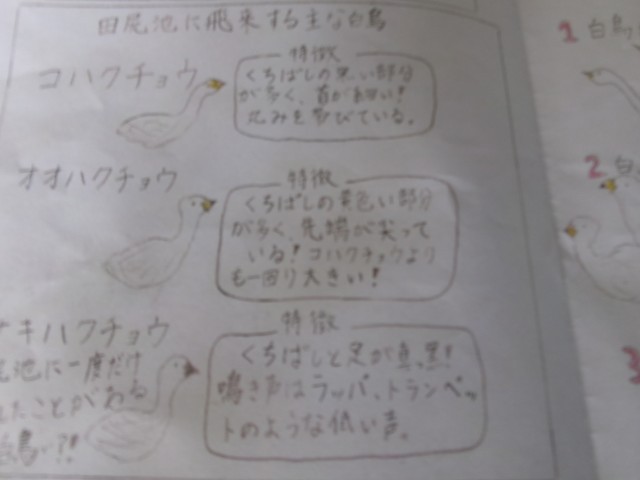 田尻池に飛来する主な白鳥
コハクチョウ
特徴
くちばしの黒い部分
が多く、首が細い!
丸みを帯びている。
オオハクチョウ
特徴
くちばしの黄色い部分
が多く、先端が尖って
いる!コハクチョウより
も一回り大きい!
キハクチョウ
池に一度だけ
たことがある
鳥!?!
特徴
くちばしと足が真っ黒!
鳴き声はラッパ、トランペッ
トのような低い声。
1 白鳥
2 白
3